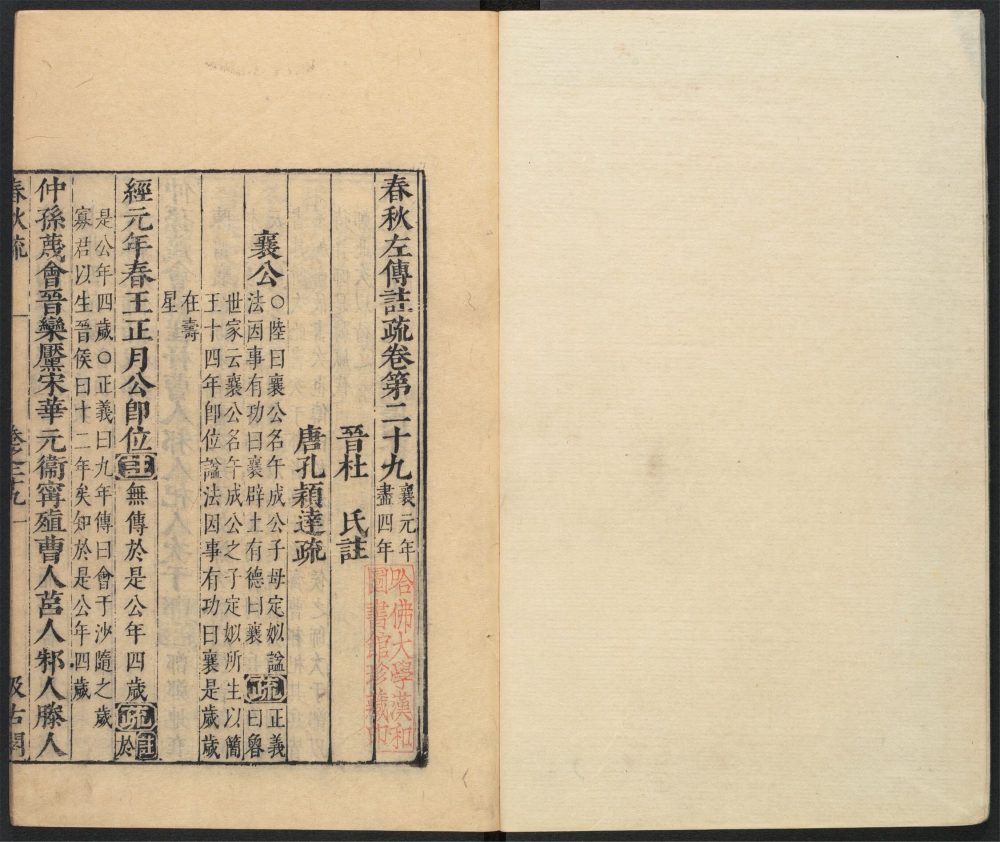 春秋左傳註疏卷第二十九 襄元年
盡四年
晉杜 氏註
唐孔穎達疏
襄公 ○陸曰襄公名午成公子母定姒諡
法因事有功曰襄辟土有德曰襄 疏 正義
曰魯
世家云襄公名午成公之子定姒所生以簡
王十四年即位諡法因事有功曰襄是歲歲
在壽
星
經元年春王正月公即位 註 無傳於是公年四歲 疏 註
於
是公年四歲○正義曰九年傳曰會于沙隨之歲
寡君以生晉侯曰十二年矣知於是公年四歲
仲孫蔑會晉欒黶宋華元衞甯殖曹人莒人邾人滕人
春秋疏 卷之二十九 一 汲古閣
哈佛大學漢和
圖書館珍藏印